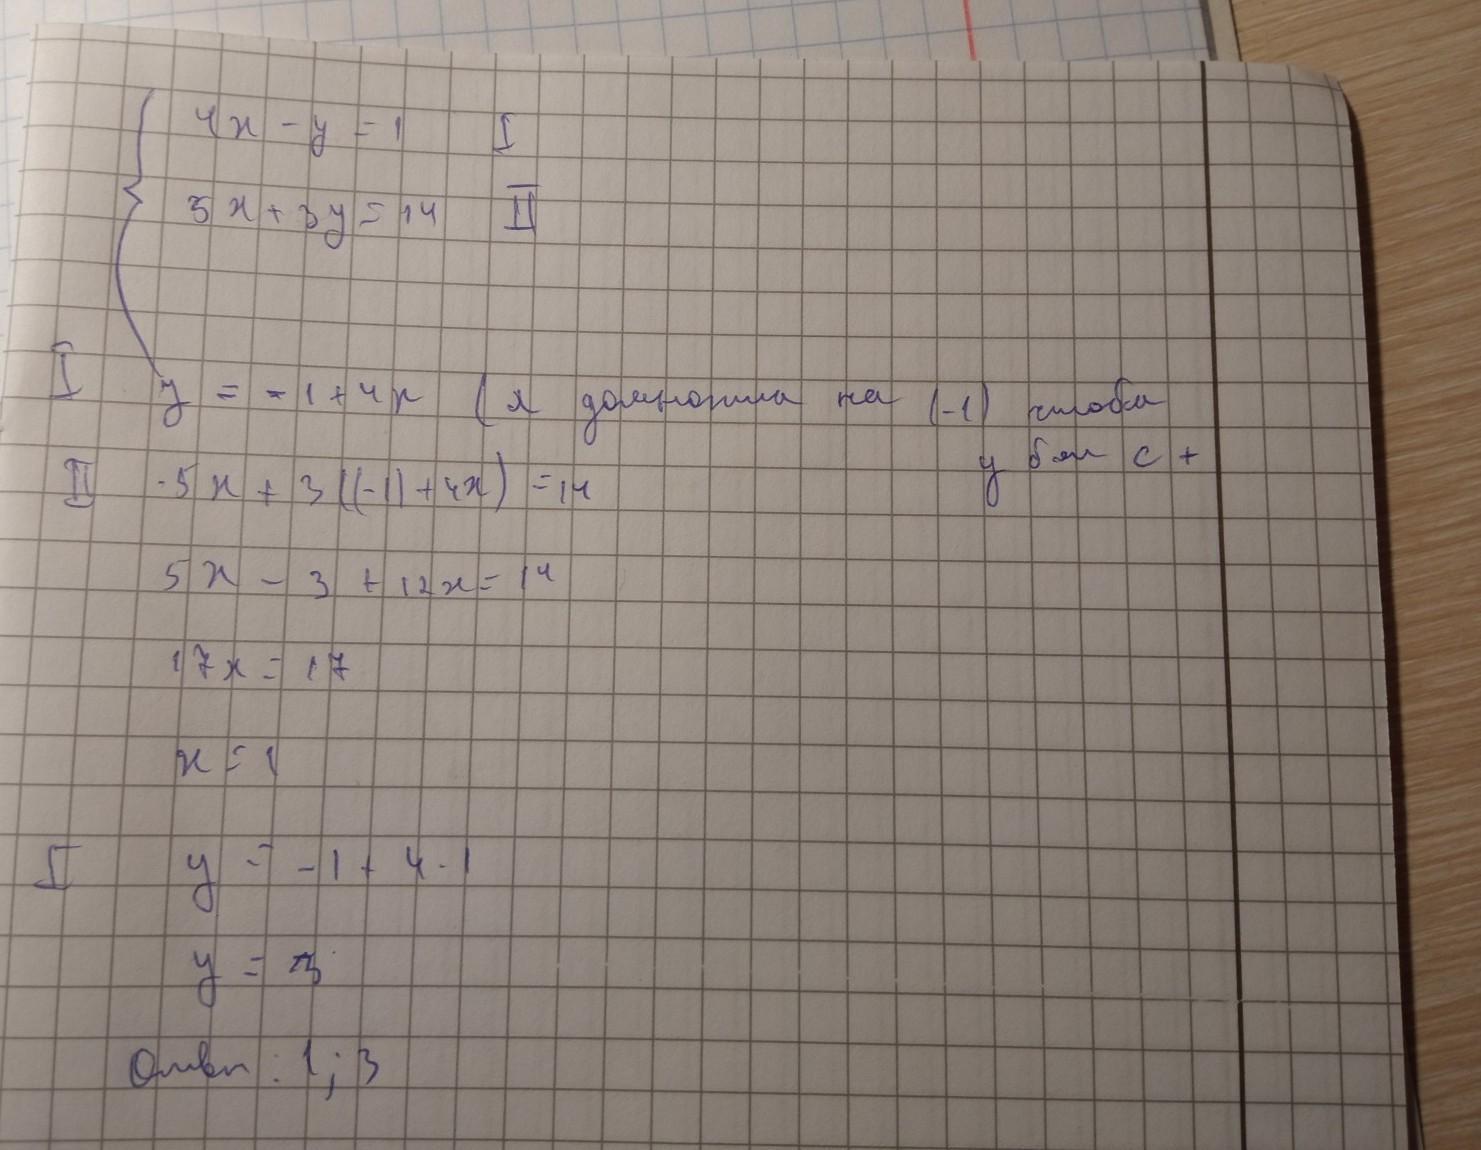 4x - y = 1 I
5x + 3y = 14 II
I y = -1 + 4x (я домножила на (-1) чтобы
у был с +
II 5x + 3((-1) + 4x) = 14
5x - 3 + 12x = 14
17x = 17
x = 1
I y = -1 + 4 · 1
y = 3
Ответ: 1; 3